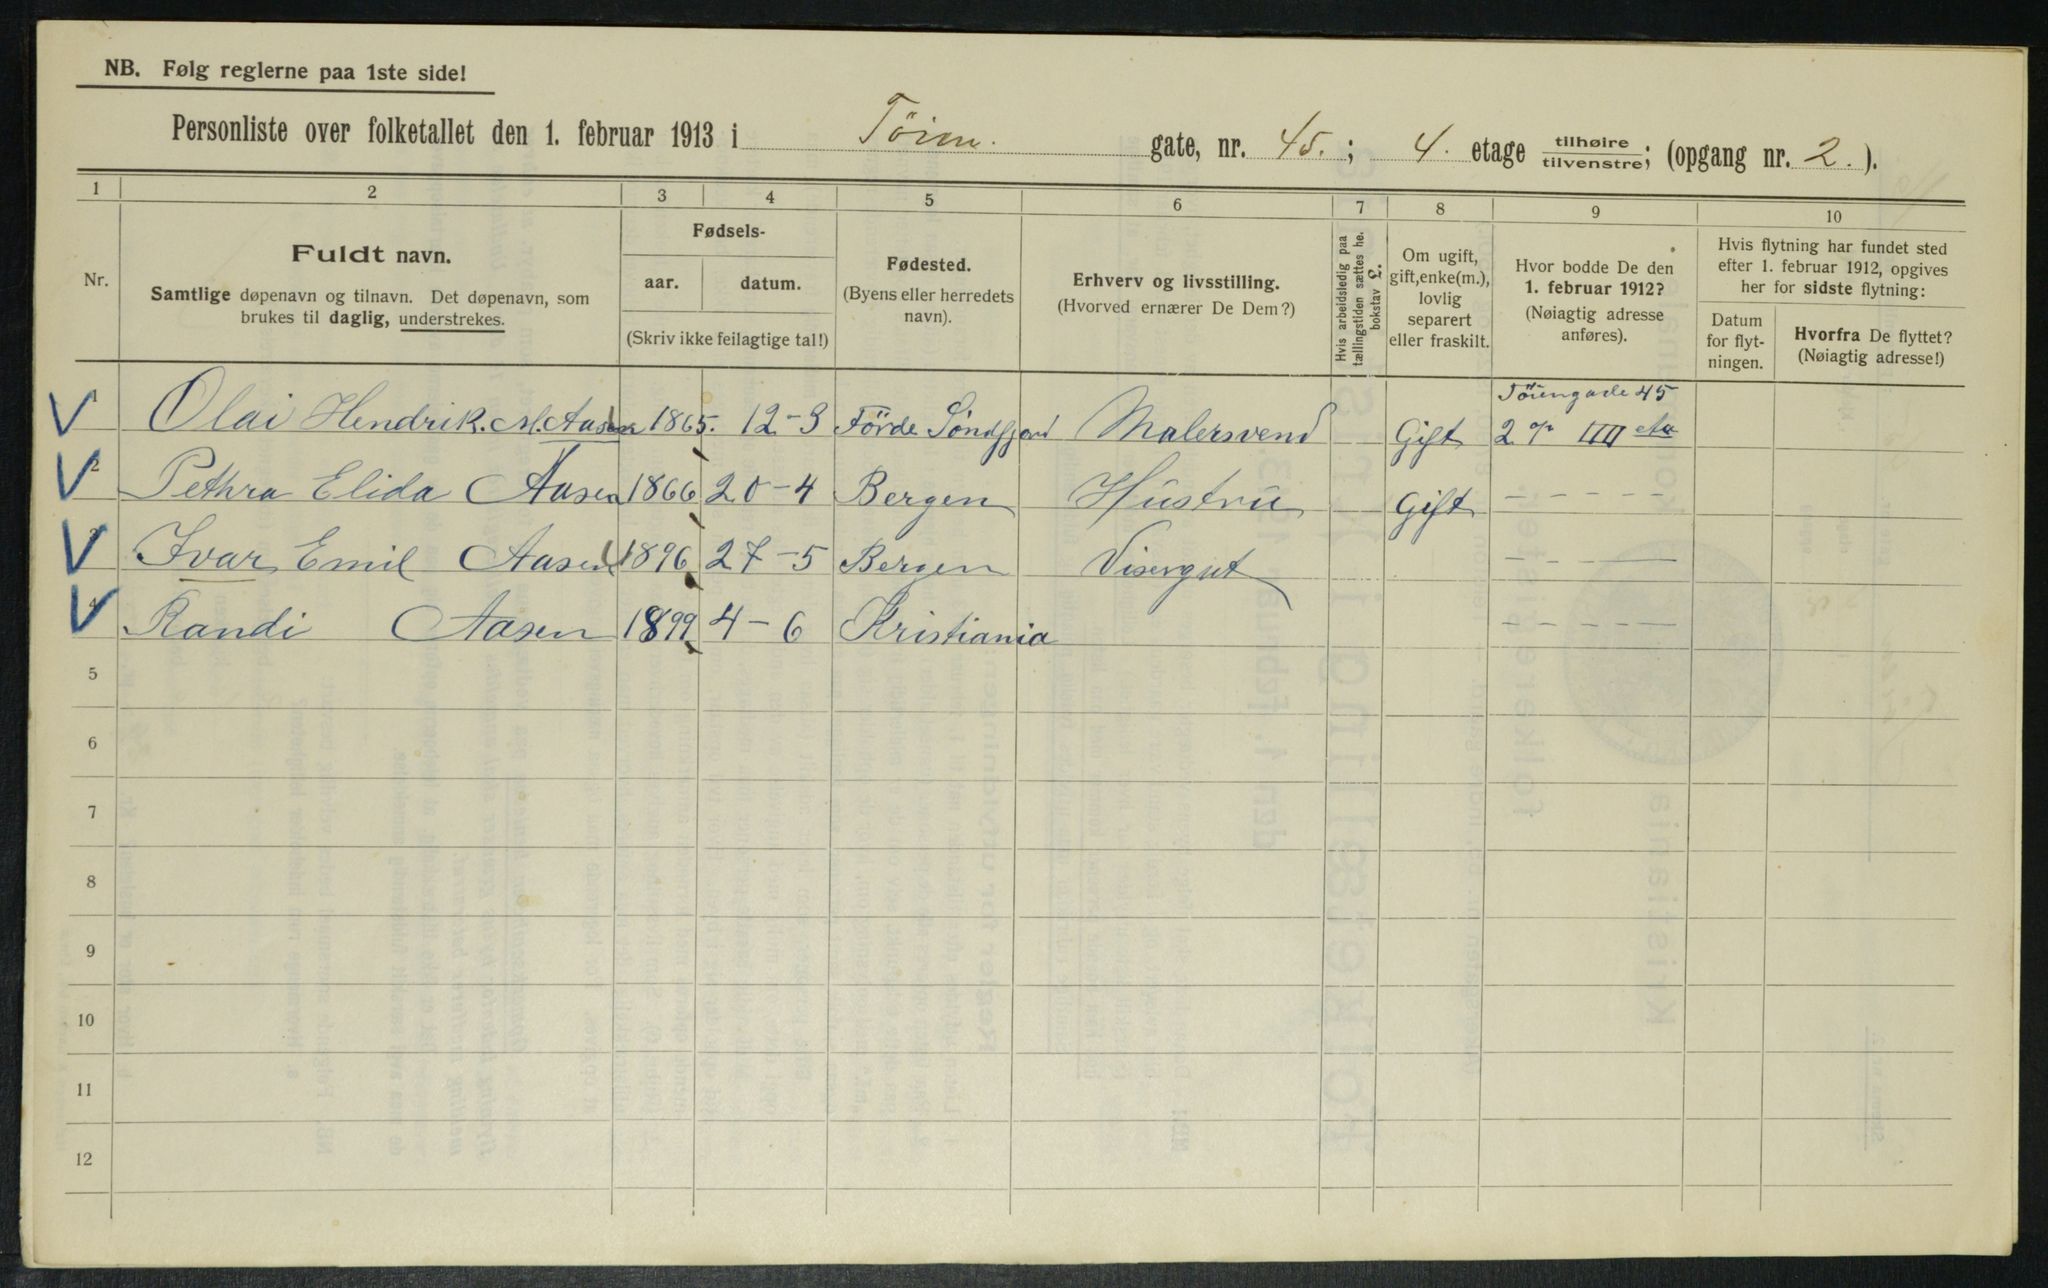 NB. Følg reglerne paa 1ste side!
Personliste over folketallet den 1. februar 1913 i Töien gate, nr. 45.; 4. etage tilhøire tilvenstre; (opgang nr. 2.).
1 2 3 4 5 6 7 8 9 10
Nr.
Fuldt navn.
Samtlige døpenavn og tilnavn. Det døpenavn, som
brukes til daglig, understrekes.
Fødsels-
aar. datum.
(Skriv ikke feilagtige tal!)
Fødested.
(Byens eller herredets
navn).
Erhverv og livsstilling.
(Hvorved ernærer De Dem?)
Hvis arbeidsledig paa
tællingstiden sættes her
bokstav L.
Om ugift,
gift, enke(m.),
lovlig
separert
eller fraskilt.
Hvor bodde De den
1. februar 1912?
(Nøiagtig adresse
anføres).
Hvis flytning har fundet sted
efter 1. februar 1912, opgives
her for sidste flytning:
Datum
for flyt-
ningen.
Hvorfra De flyttet?
(Nøiagtig adresse!)
Töiengade 45
1 Olai Hendrik. M. Aasen 1865. 12-3 Förde Söndfjord Malersvend Gift 2 op IIII eta
2 Pethra Elida Aasen 1866 20-4 Bergen Hustru Gift - - - - -
3 Ivar Emil Aasen 1896 27-5 Bergen Visergut - - - -
4 Randi Aasen 1899 4-6 Kristiania - - - - -
5
6
7
8
9
10
11
12